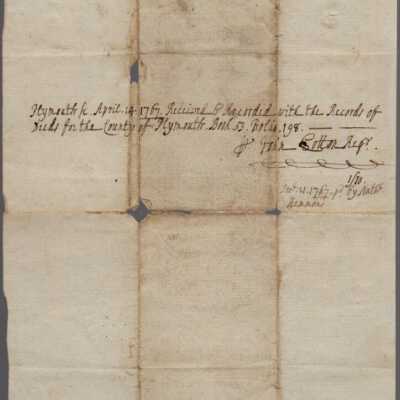 Plymouth Sc. April. 14. 1767. Received & Recorded with the Records of
Deeds for the County of Plymouth Book 53. Folio. 198.
John Cotton Regr.
1767. pd by Nathl.